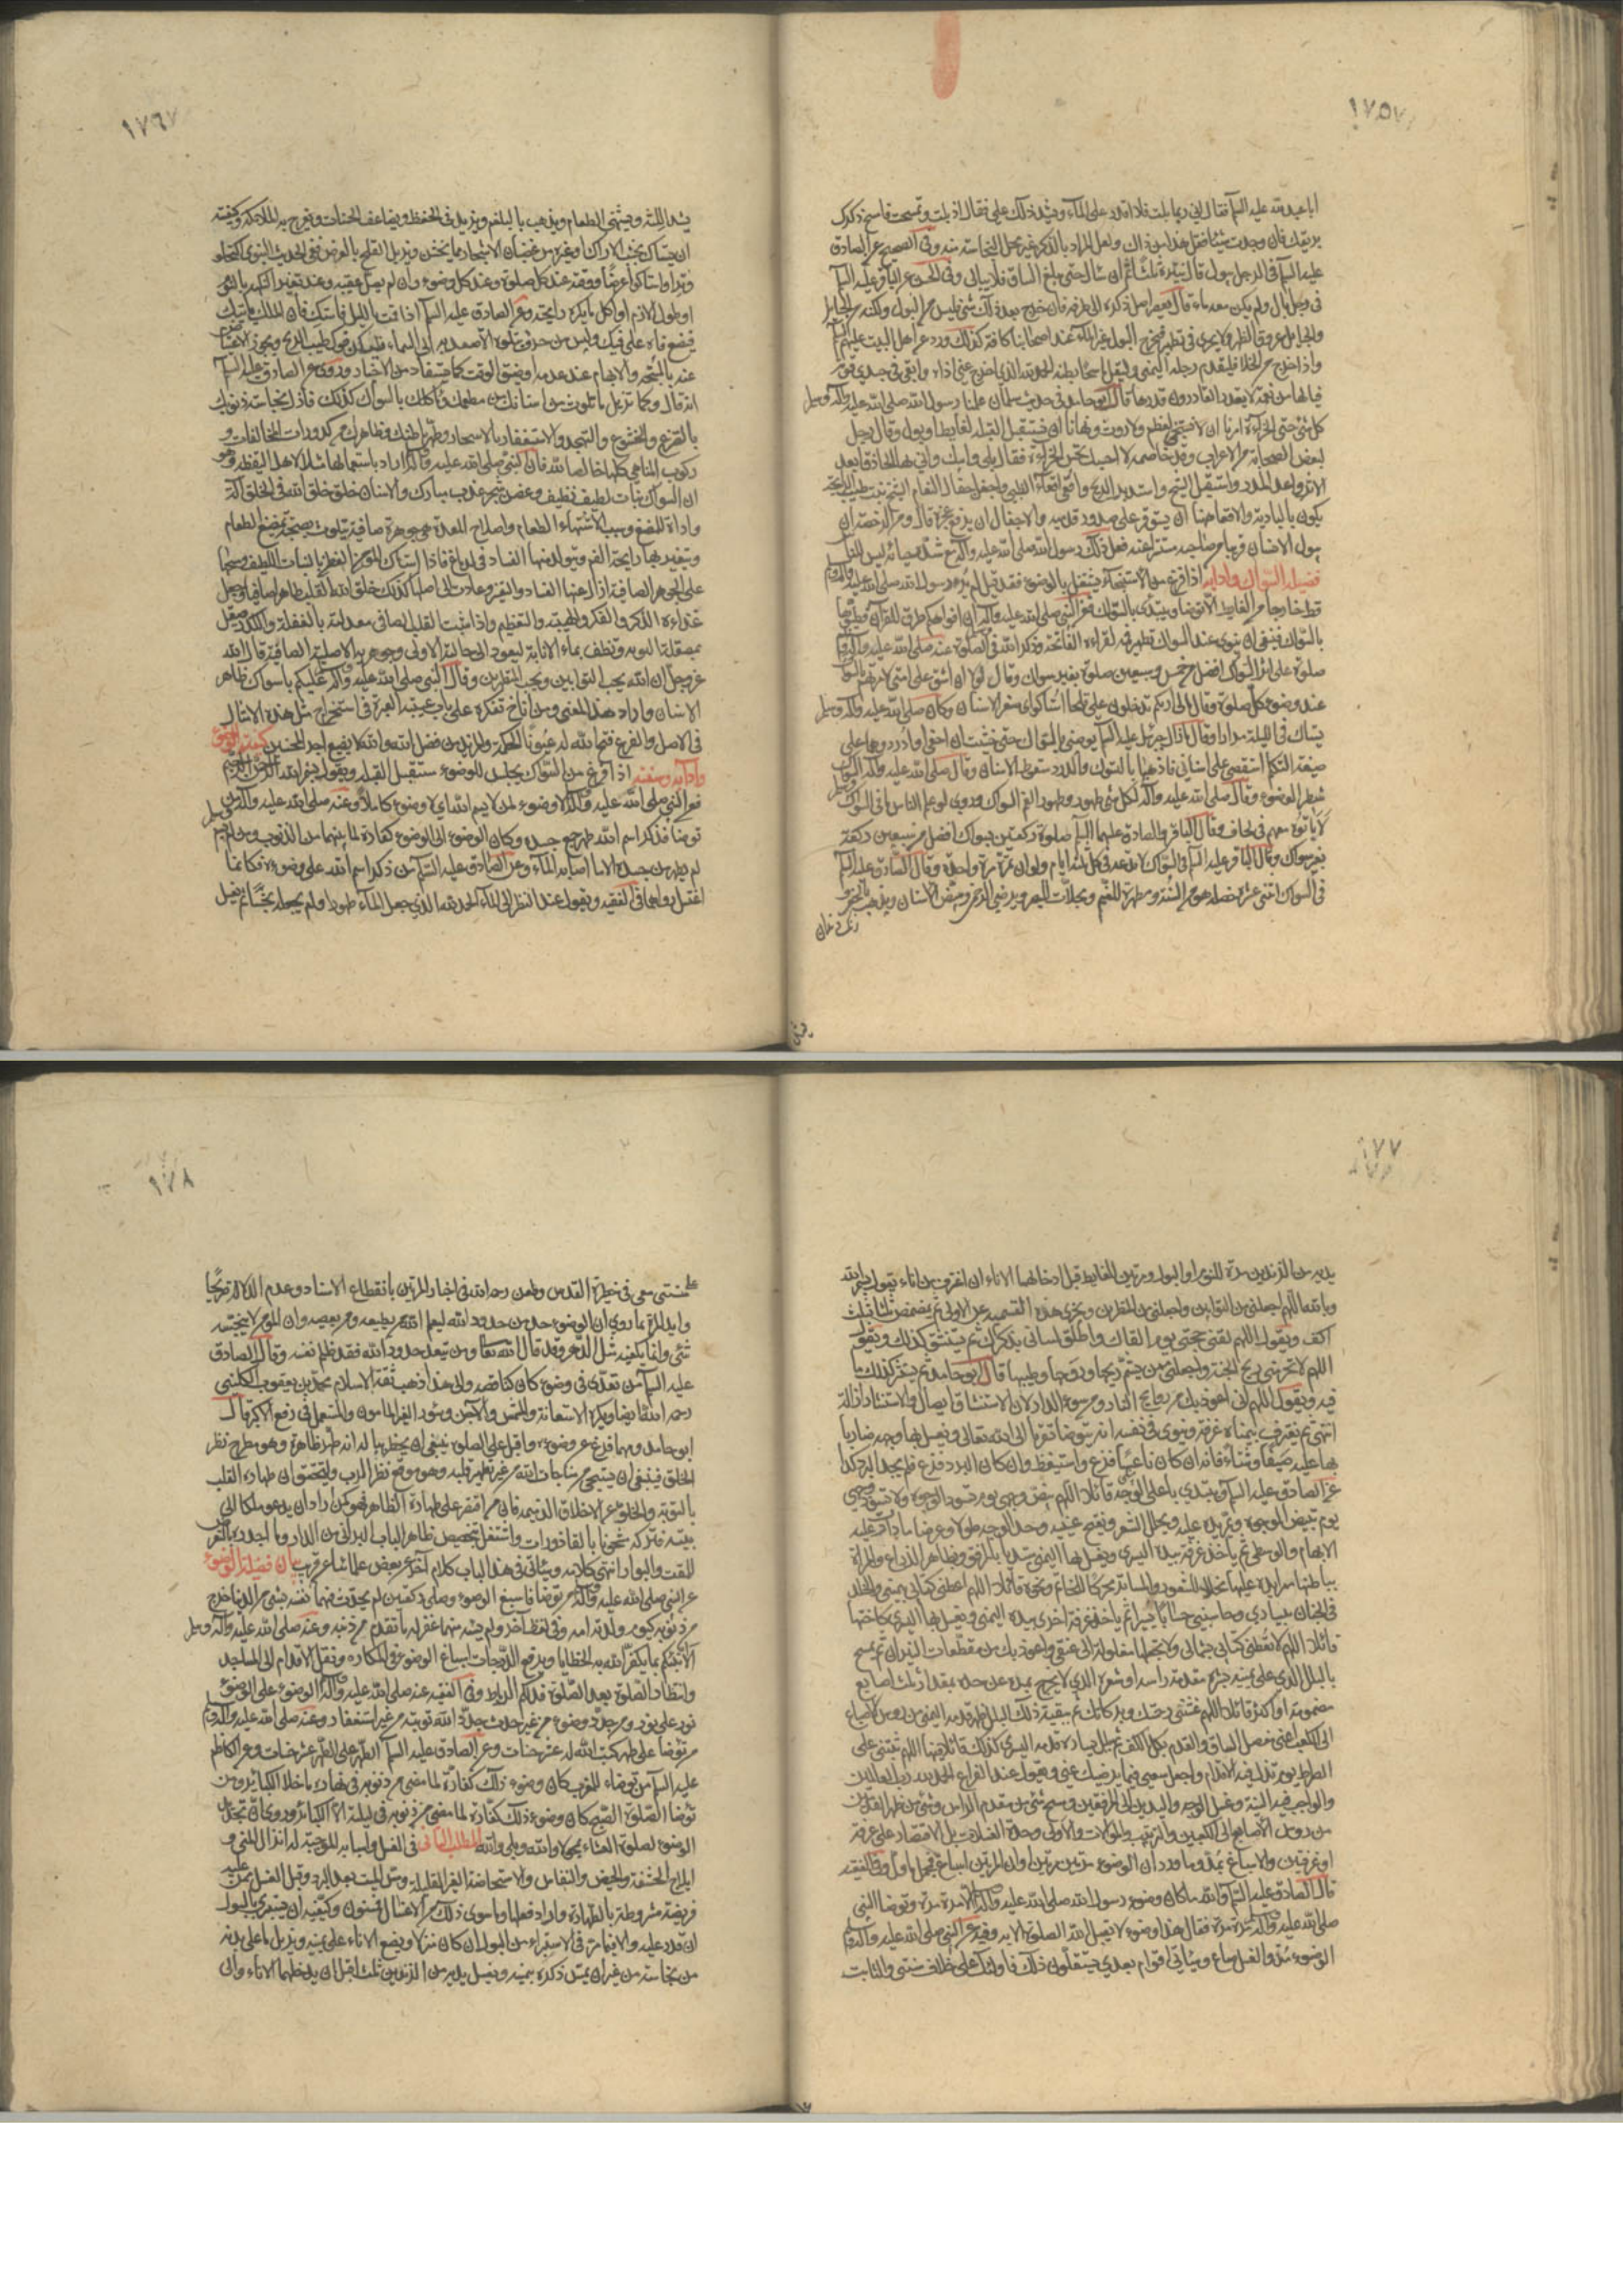 ١٧٥
أبا عبد الله عليه السلم فقال اني ربما بلت فلا اقدر على الماء ويشتد ذلك علي فقال اذا بلت وتمسحت فامسح ذكرك
بريقك فان وجدت شيئا فقل هذا من ذاك ولعل المراد بالذكر غير محل النجاسة منه وفي الصحيح عن الصادق
عليه السلم في الرجل يبول قال ينتره ثلثا ثم ان سال حتى بلغ الساق فلا يبالي وفي الحسن عن الباقر عليه السلم
في رجل بال ولم يكن معه ماء قال يعصر اصل ذكره الى طرفه فان خرج بعد ذلك شئ فليس من البول ولكنه من الحبايل
والحبايل عروق الظهر ولا يجزي في تطهير مخرج البول غير الماء عند اصحابنا كافة كذلك ورد عن اهل البيت عليهم السلم
واذا خرج من الخلا فليقدم رجله اليمنى وليقل ماسحا بطنه الحمد لله الذي اخرج عني اذاه وابقى في جسدي قوته
فيالها من نعمة لا يقدر القادرون قدرها قال ابو حامد في حديث سلمان علمنا رسول الله صلى الله عليه واله وسلم
كل شئ حتى الخراءة امرنا ان لا نستنجي بعظم ولا روث ونهانا ان نستقبل القبلة لغايط او بول وقال رجل
لبعض الصحابة من الاعراب وقد خاصمه لا احسبك تحسن الخراءة فقال بلى وابيك واني بها لحاذق ابعد
الاثر واعد المدر واستقبل الشيح واستدبر الريح واقعي اقعاء الظبي واجفل اجفال النعام الشيح نبت طيب الرايحة
يكون بالبادية والاقعا هنا ان يستوفز على صدور قدميه والاجفال ان يرفع عجزه قال ومن الرخصة ان
يبول الانسان قريبا من صاحبه مستترا عنه فعل ذلك رسول الله صلى الله عليه واله مع شدة حيائه ليبين للناس
فضيلة السواك وادابه اذا فرغ من الاستنجاء يشتغل بالوضوء فقد قيل لم ير رسول الله صلى الله عليه واله وسلم
قط خارجا من الغايط الا توضا ويبتدئ بالسواك فعن النبي صلى الله عليه واله ان افواهكم طرق للقرآن فطيبوها
بالسواك فينبغي ان ينوي عند السواك تطهير فيه لقراءة الفاتحة وذكر الله في الصلوة وعنه صلى الله عليه واله وسلم
صلوة على اثر السواك افضل من خمس وسبعين صلوة بغير سواك وقال لولا ان اشق على امتي لامرتهم بالسواك
عند وضوء كل صلوة وقال ما لي اراكم تدخلون علي قلحا استاكوا اي صفر الاسنان وكان صلى الله عليه واله وسلم
يستاك في الليلة مرارا وقال ما زال جبرئيل عليه السلم يوصيني بالسواك حتى خشيت ان احفي او ادرد وهما على
صيغة التكلم استقصي على اسناني فاذهبها بالسواك والدرد سقوط الاسنان وقال صلى الله عليه واله السواك
شطر الوضوء وقال صلى الله عليه واله لكل شئ طهور وطهور الفم السواك وروي لو علم الناس ما في السواك
لاباتوه معهم في لحاف وقال الباقر والصادق عليهما السلم صلوة ركعتين بسواك افضل من سبعين ركعة
بغير سواك وقال الباقر عليه السلم في السواك لا تدعه في كل ثلثة ايام ولو ان تمره مرة واحدة وقال الصادق عليه السلم
في السواك اثنتي عشرة خصلة هو من السنة ومطهرة للفم ومجلاة للبصر ويرضي الرحمن ويبيض الاسنان ويذهب بالحفر
١٧٦
يشد اللثة ويشهي الطعام ويذهب بالبلغم ويزيد في الحفظ ويضاعف الحسنات وتفرح به الملائكة وكيفيته
ان يستاك بخشب الاراك او غيره من قضبان الاشجار مما يخشن ويزيل القلح بالعرض ففي الحديث النبوي اكتحلوا
وترا واستاكوا عرضا ووقته عند كل صلوة وعند كل وضوء وان لم يصل عقيبه وعند تغير النكهة بالنوم
او طول الازم او اكل ما يكره رايحته وعن الصادق عليه السلم اذا قمت بالليل فاستك فان الملك ياتيك
فيضع فاه على فيك وليس من حرف تتلوه الا صعد به الى السماء فليكن فوك طيب الريح ويجزي الاعتياض
عنه بالمسبحة والابهام عند عدمه او ضيق الوقت كما يستفاد من الاخبار وروي عن الصادق عليه السلم
انه قال وكما تزيل ما تلوث من اسنانك من مطعمك وماكلك بالسواك كذلك فازل نجاسة ذنوبك
بالتضرع والخشوع والتهجد والاستغفار بالاسحار وطهر باطنك وظاهرك من كدورات المخالفات و
ركوب المناهي كلها خالصا لله فان النبي صلى الله عليه واله اراد باستعمالها مثلا لاهل اليقظة وهو
ان السواك نبات لطيف نظيف وغصن شجر عذب مبارك والاسنان خلق خلقه الله في الخلق آلة
واداة للمضغ وسببا لاشتهاء الطعام واصلاح المعدة وهي جوهرة صافية يتلوث بصحبة تمضيغ الطعام
ويتغير بها رايحة الفم ويتولد منها الفساد في الدماغ فاذا استاك المؤمن الفطن بالنبات اللطيف ومسحها
على الجوهرة الصافية ازال عنها الفساد والتغير وعادت الى اصلها كذلك خلق الله القلب طاهرا صافيا وجعل
غذاءه الذكر والفكر والهيبة والتعظيم واذا شيب القلب الصافي بتغذيته بالغفلة والكدر صقل
بمصقلة التوبة ونظف بماء الانابة ليعود الى حالته الاولى وجوهريته الاصلية الصافية قال الله
عز وجل ان الله يحب التوابين ويحب المتطهرين وقال النبي صلى الله عليه واله عليكم بالسواك ظاهر
الاسنان واراد هذا المعنى ومن اناخ تفكره على باب عتبة العبرة في استخراج مثل هذه الامثال
في الاصل والفرع فتح الله له عيون الحكمة والمزيد من فضل الله والله لا يضيع اجر المحسنين كيفية الوضوء
وآدابه وسننه اذا فرغ من السواك يجلس للوضوء مستقبل القبلة ويقول بسم الله الرحمن الرحيم
فعن النبي صلى الله عليه واله لا وضوء لمن لا يسم الله اي لا وضوء كاملا وعنه صلى الله عليه واله من
توضا فذكر اسم الله طهر جميع جسده وكان الوضوء الى الوضوء كفارة لما بينهما من الذنوب ومن لم يسم
لم يطهر من جسده الا ما اصابه الماء وعن الصادق عليه السلم من ذكر اسم الله على وضوءه فكانما
اغتسل رواهما في الفقيه ويقول عند النظر الى الماء الحمد لله الذي جعل الماء طهورا ولم يجعله نجسا ثم يغسل
١٧٧
يديه من الزندين مرة للنوم او البول ومرتين للغايط قبل ادخالهما الاناء ان اغترف من اناء يقول بسم الله
وبالله اللهم اجعلني من التوابين واجعلني من المتطهرين ويجزي هذه التسمية عن الاولى ثم يتمضمض ثلثا بثلث
اكف ويقول اللهم لقني حجتي يوم القاك واطلق لساني بذكرك ثم يستنشق كذلك ويقول
اللهم لا تحرمني ريح الجنة واجعلني ممن يشم ريحها وروحها وطيبها قال ابو حامد ثم يستنثر كذلك ما
فيه ويقول اللهم اني اعوذ بك من روايح النار ومن سوء الدار لان الاستنشاق ايصال والاستنثار ازالة
انتهى ثم يغترف بيمناه غرفة وينوي في نفسه انه يتوضا تقربا الى الله تعالى ويغسل بها وجهه ضاربا
بها عليه صيفا وشتاء فانه ان كان ناعسا فزع واستيقظ وان كان البرد فزع فلم يجد البرد كذا
عن الصادق عليه السلم ويبتدي باعلى الوجه قائلا اللهم بيض وجهي يوم تسود الوجوه ولا تسود وجهي
يوم تبيض الوجوه ويمر يده عليه ويخلل الشعر ويفتح عينيه وحد الوجه طولا وعرضا ما دارت عليه
الابهام والوسطى ثم ياخذ غرفة بيده اليسرى ويغسل بها اليمنى مبتديا بالمرفق وبظاهر الذراع والمراة
بباطنها مرا يده عليها مخللا للشعور والمساتر محركا للخاتم ونحوه قائلا اللهم اعطني كتابي بيميني والخلد
في الجنان بيساري وحاسبني حسابا يسيرا ثم ياخذ غرفة اخرى بيده اليمنى ويغسل بها اليسرى كاختها
قائلا اللهم لا تعطني كتابي بشمالي ولا تجعلها مغلولة الى عنقي واعوذ بك من مقطعات النيران ثم يمسح
بالبلل الذي على يمينه بشرة مقدم راسه او شعره الذي لا يخرج بمده عن حده بمقدار ثلث اصابع
مضمومة او اكثر قائلا اللهم غشني رحمتك وبركاتك ثم ببقية ذلك البلل ظهر قدمه اليمنى من رؤس الاصابع
الى الكعب اعني مفصل الساق والقدم بكل الكف ثم ببلل يساره قدمه اليسرى كذلك قائلا فيهما اللهم ثبتني على
الصراط يوم تزل فيه الاقدام واجعل سعيي فيما يرضيك عني ويقول عند الفراغ الحمد لله رب العالمين
والواجب فيه النية وغسل الوجه واليدين الى المرفقين ومسح شئ من مقدم الراس وشئ من ظهر القدمين
من رؤس الاصابع الى الكعبين والترتيب والموالات والاولى وحدة الغسلات بل الاقتصار على غرفة
او غرفتين والاسباغ بمد وما ورد ان الوضوء مرتين مرتين وان المرتين اسباغ فمحمول ماول وفي الفقيه
قال الصادق عليه السلم والله ما كان وضوء رسول الله صلى الله عليه واله الا مرة مرة وتوضا النبي
صلى الله عليه واله مرة مرة فقال هذا وضوء لا يقبل الله الصلوة الا به وفيه عن النبي صلى الله عليه واله وسلم
الوضوء مد والغسل صاع وسياتي اقوام بعدي يستقلون ذلك فاولئك على خلاف سنتي والثابت
١٧٨
على سنتي معي في حظيرة القدس وطعن رحمه الله في اخبار المرتين بانقطاع الاسناد وعدم الدلالة صريحا
وايد المرة بما روي ان الوضوء حد من حدود الله ليعلم الله من يطيعه ومن يعصيه وان المؤمن لا ينجسه
شئ وانما يكفيه مثل الدهن وقد قال الله تعالى ومن يتعد حدود الله فقد ظلم نفسه وقال الصادق
عليه السلم من تعدى في وضوءه كان كناقضه والى هذا ذهب ثقة الاسلام محمد بن يعقوب الكليني
رحمه الله ايضا ويكره الاستعانة والمشمس والآجن وسؤر الغير المامون والمستعمل في رفع الاكبر قال
ابو حامد ومهما فرغ عن وضوءه واقبل على الصلوة ينبغي ان يخطر بباله انه طهر ظاهره وهو مطرح نظر
الخلق فينبغي ان يستحيي من مناجات الله من غير تطهير قلبه وهو موقع نظر الرب وليتحقق ان طهارة القلب
بالتوبة والخلو عن الاخلاق الذميمة فان من اقتصر على طهارة الظاهر فهو كمن اراد ان يدعو ملكا الى
بيته فتركه مشحونا بالقاذورات واشتغل بتجصيص ظاهر الباب البراني من الدار وما اجدره بالتعرض
للمقت والبوار انتهى كلامه وسياتي في هذا الباب كلام آخر عن بعض علمائنا عن قريب بيان فضيلة الوضوء
عن النبي صلى الله عليه واله من توضا فاسبغ الوضوء وصلى ركعتين لم يحدث فيهما نفسه بشئ من الدنيا خرج
من ذنوبه كيوم ولدته امه وفي لفظ آخر ولم يسه فيهما غفر له ما تقدم من ذنبه وعنه صلى الله عليه واله وسلم
الا انبئكم بما يكفر الله به الخطايا ويرفع الدرجات اسباغ الوضوء في المكاره ونقل الاقدام الى المساجد
وانتظار الصلوة بعد الصلوة فذلكم الرباط وفي الفقيه عنه صلى الله عليه واله الوضوء على الوضوء
نور على نور ومن جدد وضوءه من غير حدث جدد الله توبته من غير استغفار وعنه صلى الله عليه واله وسلم
من توضا على طهر كتب الله له عشر حسنات وعن الصادق عليه السلم الطهر على الطهر عشر حسنات وعن الكاظم
عليه السلم من توضاء للمغرب كان وضوءه ذلك كفارة لما مضى من ذنوبه في نهاره ما خلا الكبائر ومن
توضا لصلوة الصبح كان وضوءه ذلك كفارة لما مضى من ذنوبه في ليلته الا الكبائر وروي ان تجديد
الوضوء لصلوة العشاء يمحو لا والله وبلى والله المطلب الثاني في الغسل واسبابه الموجبة له انزال المني و
ايلاج الحشفة والحيض والنفاس والاستحاضة الغير القليلة ومس الميت بعد البرد وقبل الغسل ممن عليه
فريضة مشروطة بالطهارة واراد فعلها وما سوى ذلك من الاغسال فمسنون وكيفيته ان يستبرئ بالبول
ان قدر عليه والا فبما مر في الاستبراء من البول ان كان منزلا ويضع الاناء على يمينه ويزيل ما على بدنه
من نجاسة من غير ان يمس ذكره بيمينه ويغسل يديه من الزندين ثلثا قبل ان يدخلهما الاناء وان